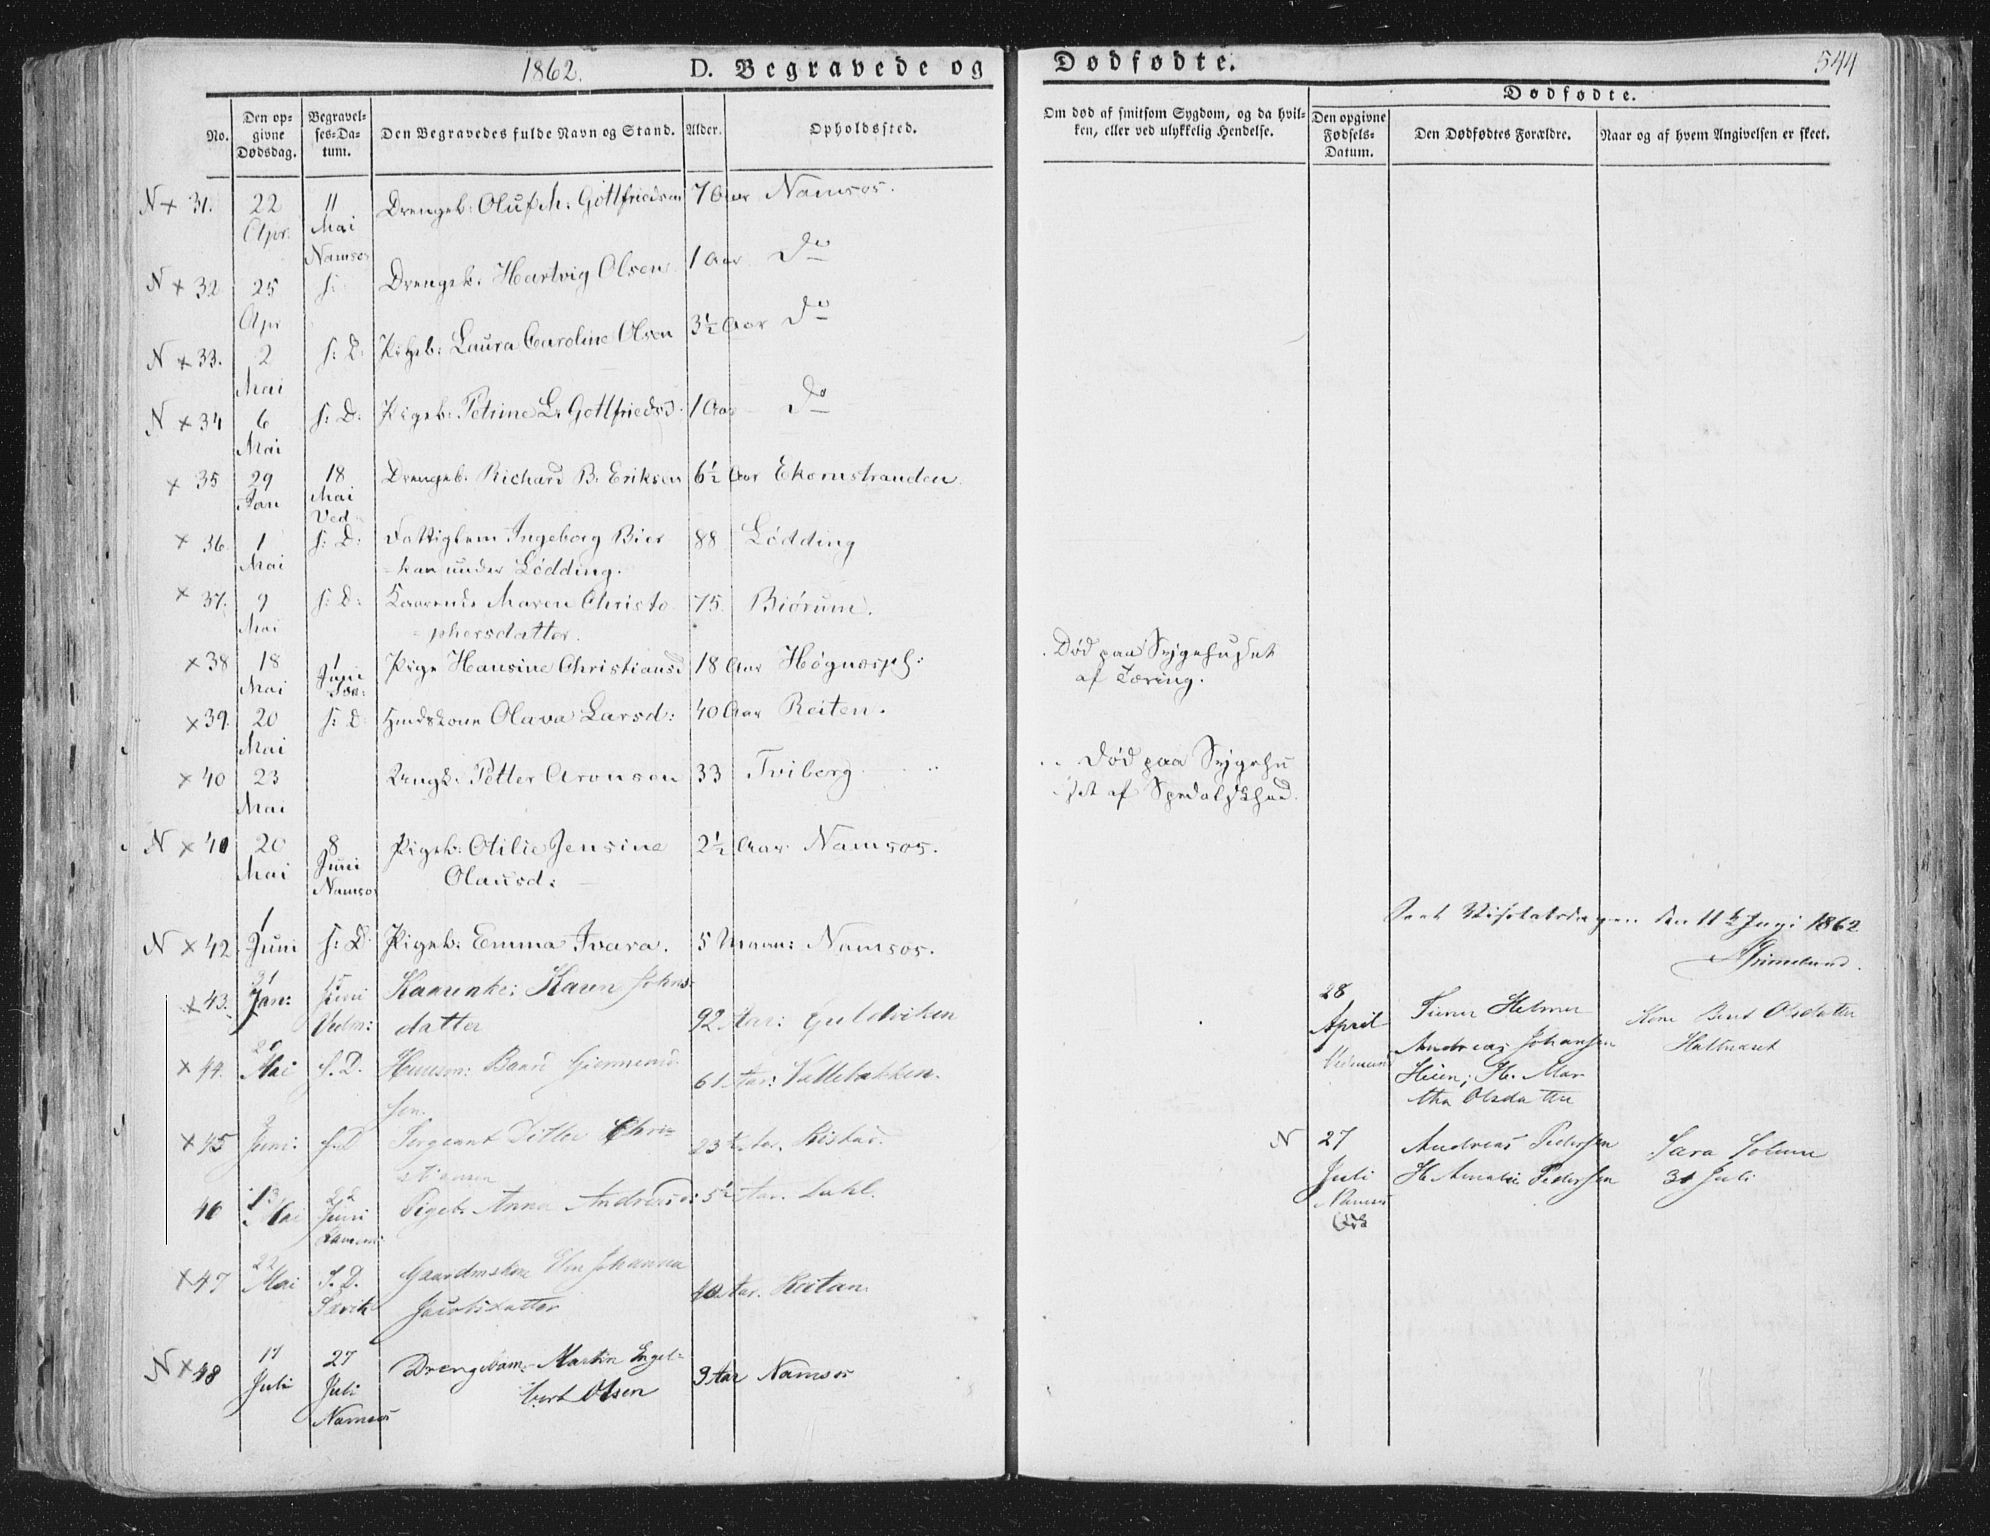 1862.
D. Begravede og
Dødfødte.
544
No.
Den opgivne Dødsdag.
Begravelses-Datum.
Den Begravedes fulde Navn og Stand.
Alder.
Opholdssted.
Om død af smitsom Sygdom, og da hvilken, eller ved ulykkelig Hendelse.
Dødfødte.
Den opgivne Fødsels-Datum.
Den Dødfødtes Forældre.
Naar og af hvem Angivelsen er skeet.
N + 31. 22 Apr. 11 Mai Namsos Drengeb: Oluf M: Gottfriedsen 7 Aar Namsos.
N + 32 25 Apr s: Drengeb: Hartvig Olsen 1 Aar Do
N + 33. 2 Mai s: D: Pigeb: Laura Caroline Olsen 3½ Aar Do
N + 34 6 Mai s: D: Pigeb: Petrine L. Gottfriedsd. 1 Aar Do
+ 35 29 Jan 18 Mai Ved Drengeb. Richard B. Eriksen 6½ Aar Ekornstranden.
+ 36 1 Mai s: D: Fattiglem Ingeborg Bier
kan under Lødding. 88 Lødding
+ 37. 9 Mai s: D: Maren Christo
phersdatter. 75. Biörum.
+ 38 18 Mai 1 Juni Pige Hansine Christiansd 18 Aar
Død paa Sygehuset
af Tæring.
+ 39. 20 Mai s: D: Olava Larsd: 40 Aar Reiten.
+ 40 23 Mai Ungk: Petter Aronsen 33 Tviberg
Død paa Sygehu
set af Spedalskhed.
N + 41 20 Mai 8 Juni Namsos Pigeb: Otilie Jensine
Olausd: 2½ Aar Namsos.
N + 42 1 Juni s: D. Pigeb: Emma Ivara. 5 Maan: Namsos.
den 11te Juni 1862
Grimelund.
+ 43. Jan: 15 Juni Vedm: Karen Johns-
datter 92 Aar: Guldviken
28 April
Andreas Johansen
Mar
tha Olsdatter
Kone Olsdatter
+ 44. Mai s. D. Husm: Baard
sen. 61 Aar: Vallebakken.
+ 45 Juni: s. D Sergeant Ditlev Chri-
stiansen 23 Aar.
N 27 Juli Namsos
Andreas Pedersen
H. Amalie Pedersen
Sara Solum
31 Juli
46 13 Mai 22 Juni Pigeb. Anna Andreasd: 5½ Aar.
+ 47 22 Mai S. D. Johanna
Jacobsdatter 40 Aar. Reitan.
N + 48 17 Juli 27 Juli Namsos Drengebarn: Martin Engel-
bert Olsen 3 Aar Namsos